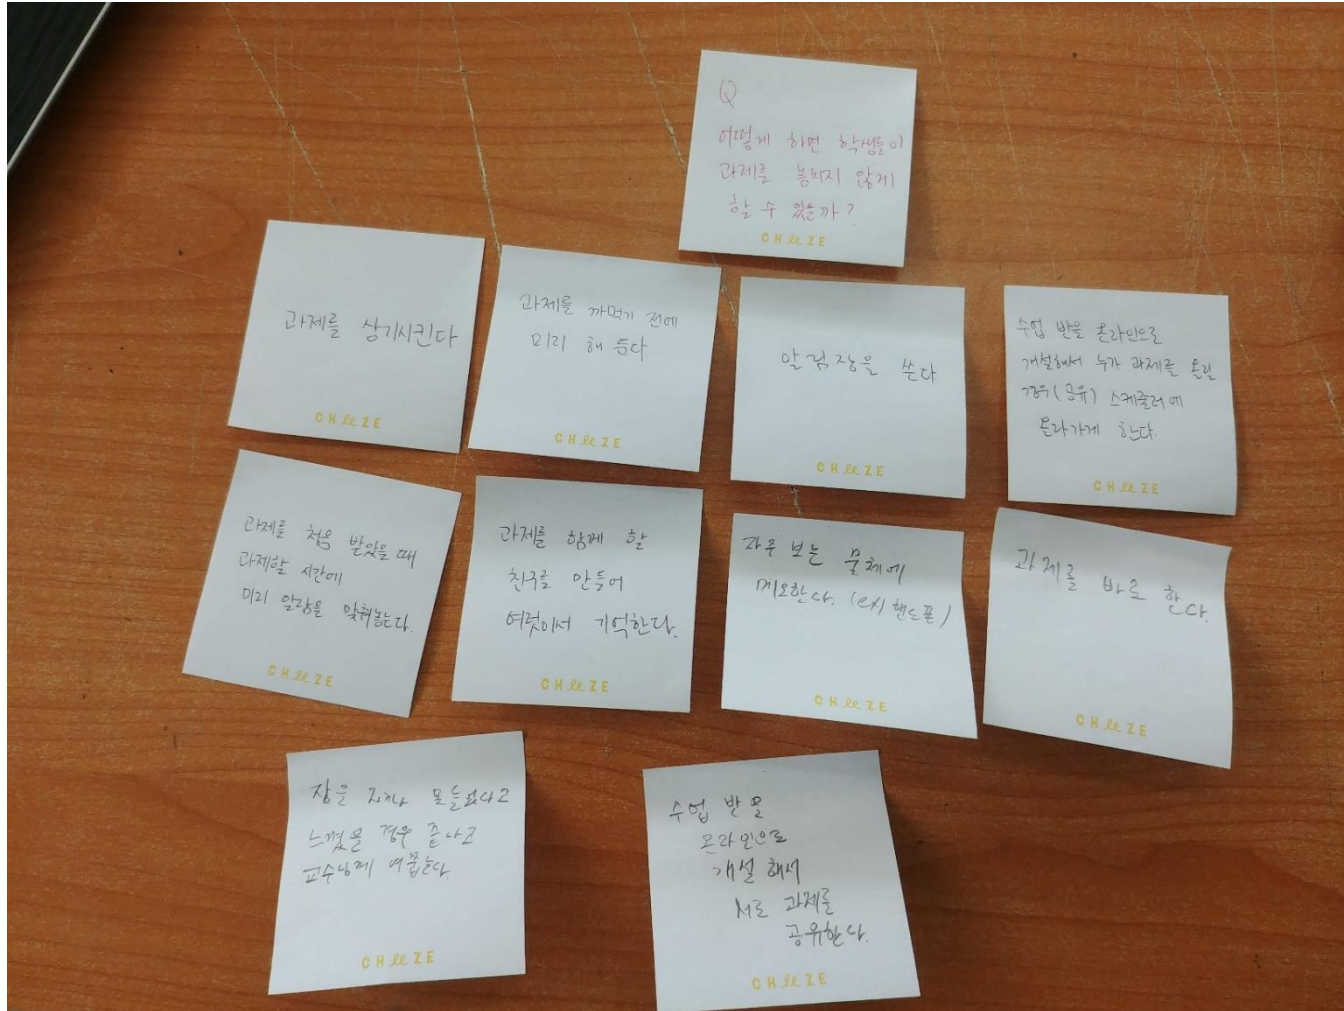 Q
어떻게 하면 학생들이
과제를 놓치지 않게
할 수 있을까?
CHeeZE
과제를 상기시킨다
CHeeZE
과제를 까먹기 전에
미리 해 둔다
CHeeZE
알림장을 쓴다
CHeeZE
수업 반을 온라인으로
개설해서 누가 과제를 올릴
경우(공유) 스케줄러에
올라가게 한다.
CHeeZE
과제를 처음 받았을 때
과제할 시간에
미리 알람을 맞춰놓는다.
CHeeZE
과제를 함께 할
친구를 만들어
여럿이서 기억한다.
CHeeZE
자주 보는 물체에
메모한다. (ex) 핸드폰)
CHeeZE
과제를 바로 한다.
CHeeZE
잠을 자거나 못들었다고
느꼈을 경우 끝나고
교수님께 여쭙는다.
CHeeZE
수업 반을
온라인으로
개설 해서
서로 과제를
공유한다.
CHeeZE